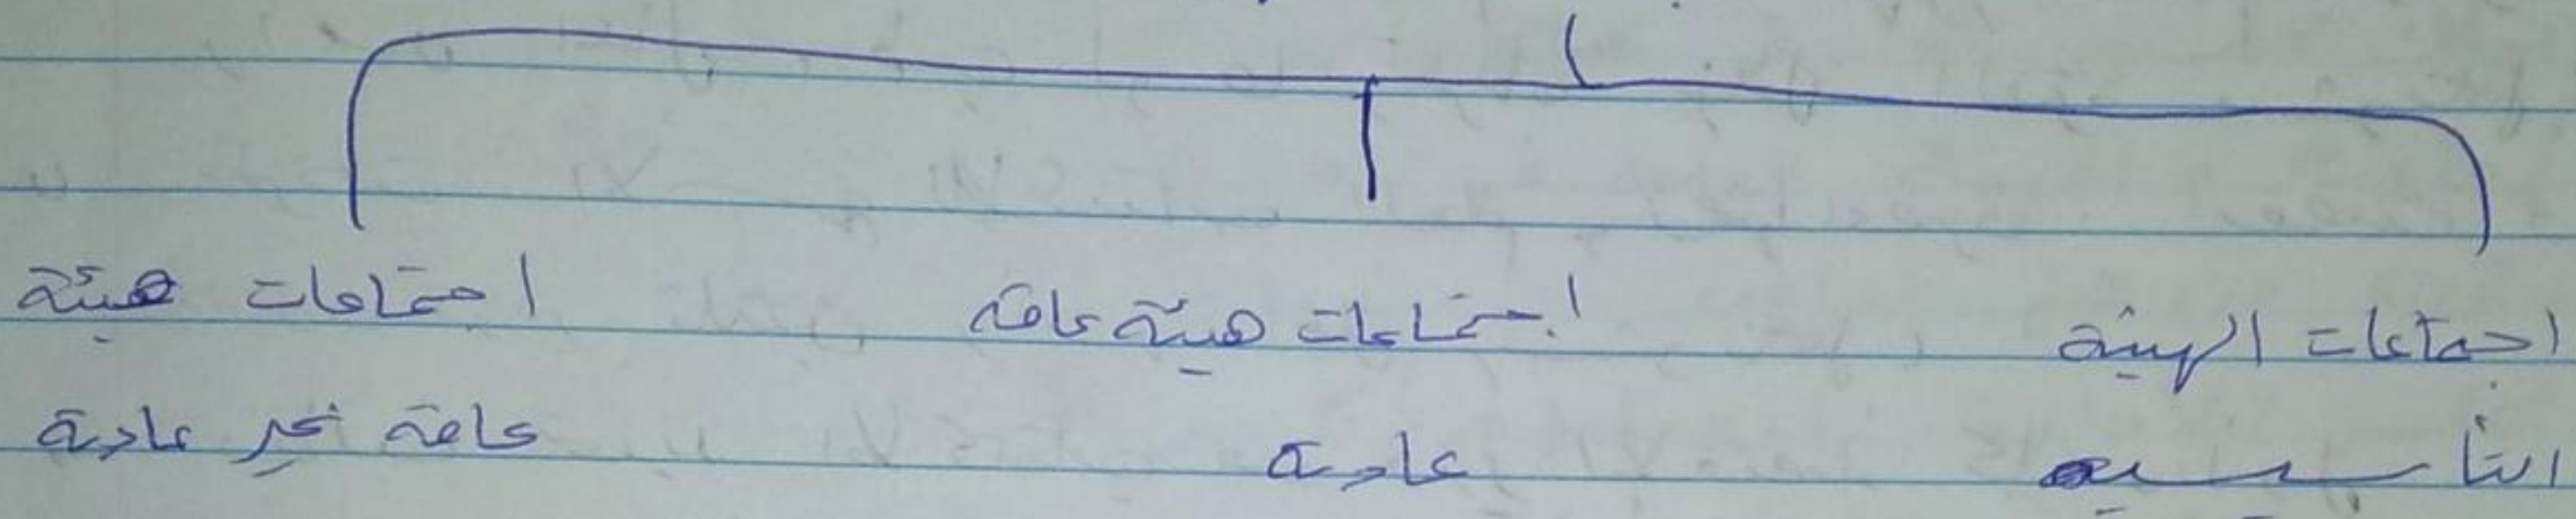 اجتماعات الهيئة
التأسيسية
اجتماعات هيئة عامة
عادية
اجتماعات هيئة
عامة غير عادية